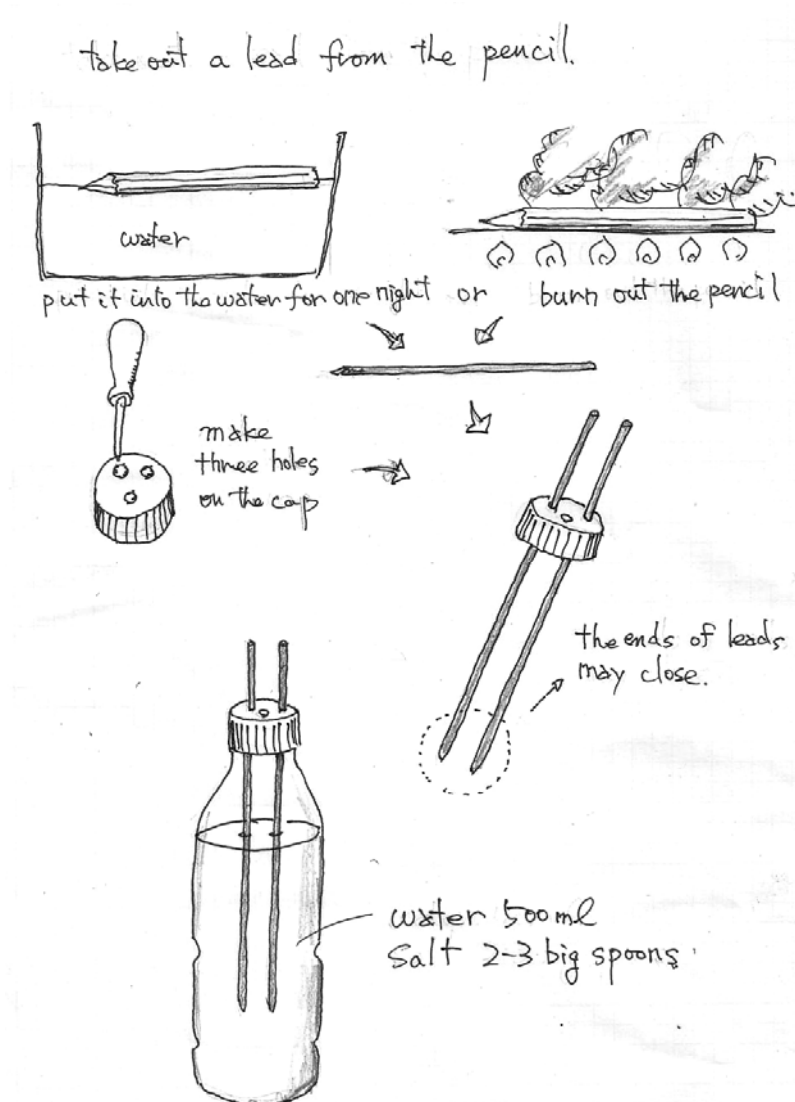 take out a lead from the pencil.
water
put it into the water for one night or burn out the pencil
make
three holes
on the cap
the ends of leads
may close.
water 500ml
Salt 2-3 big spoons